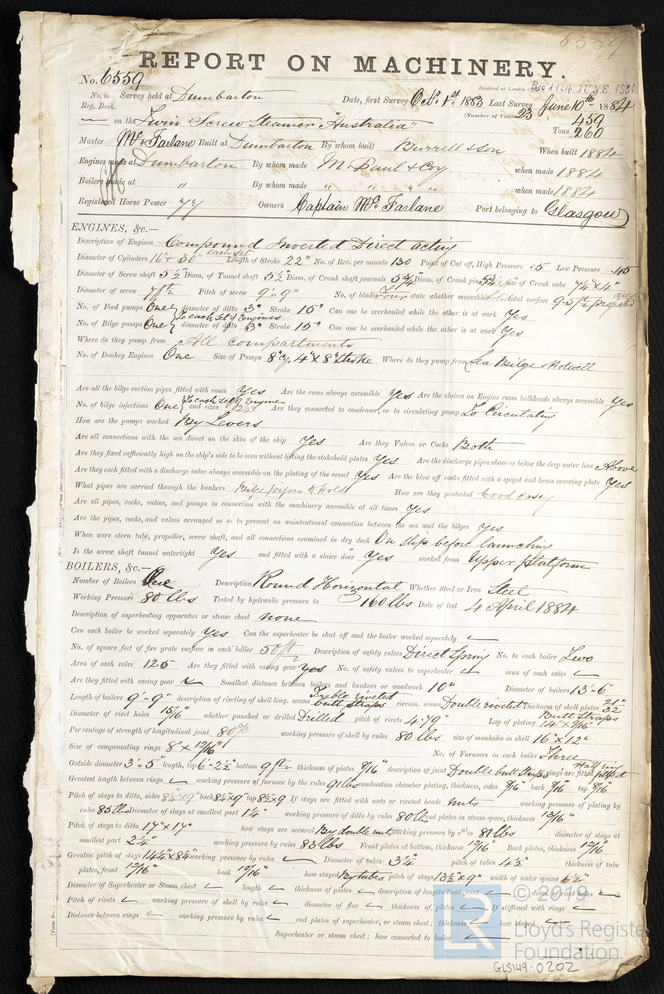 6559
REPORT ON MACHINERY.
No. 6559
Received at London Office Rec'd 12th JUNE, 1884
No. in Survey held at Dumbarton Date, first Survey Oct. 1st 1883 Last Survey June 10th 1884
Reg. Book. (Number of Visits 23
on the Twin Screw Steamer "Australia" Tons 459 260
Master McFarlane Built at Dumbarton By whom built Burrell & Son When built 1884
Engines made at Dumbarton By whom made M. Paul & Coy when made 1884
Boilers made at " By whom made " " " " when made 1884
Registered Horse Power 77 Owners Captain McFarlane Port belonging to Glasgow
ENGINES, &c.—
Description of Engines Compound Inverted Direct acting
Diameter of Cylinders 16" & 30" each set Length of Stroke 22" No. of Rev. per minute 130 Point of Cut off, High Pressure .5 Low Pressure .45
Diameter of Screw shaft 5½" Diam. of Tunnel shaft 5½" Diam. of Crank shaft journals 5¾" Diam. of Crank pin size of Crank webs 7¼ x 4"
Diameter of screw 7ft Pitch of screw 9'.0" No. of blades Four state whether moveable total surface 9.5 ft
No. of Feed pumps One to each set of Engines diameter of ditto 3" Stroke 15" Can one be overhauled while the other is at work Yes
No. of Bilge pumps One diameter of ditto 3" Stroke 15" Can one be overhauled while the other is at work Yes
Where do they pump from All compartments
No. of Donkey Engines One Size of Pumps 4" x 8" stroke Where do they pump from Sea Bilge & Hotwell
Are all the bilge suction pipes fitted with roses Yes Are the roses always accessible Yes Are the sluices on Engine room bulkheads always accessible Yes
No. of bilge injections One to each set of Engines and sizes 2½" Are they connected to condenser, or to circulating pump To Circulating
How are the pumps worked By Levers
Are all connections with the sea direct on the skin of the ship Yes Are they Valves or Cocks Both
Are they fixed sufficiently high on the ship's side to be seen without lifting the stokehold plates Yes Are the discharge pipes above or below the deep water line Above
Are they each fitted with a discharge valve always accessible on the plating of the vessel Yes Are the blow off cocks fitted with a spigot and brass covering plate Yes
What pipes are carried through the bunkers Bilge pipes to Hold How are they protected Wood casing
Are all pipes, cocks, valves, and pumps in connection with the machinery accessible at all times Yes
Are the pipes, cocks, and valves arranged so as to prevent an unintentional connection between the sea and the bilges Yes
When were stern tube, propeller, screw shaft, and all connections examined in dry dock On ship before launching
Is the screw shaft tunnel watertight Yes and fitted with a sluice door Yes worked from Upper platform
BOILERS, &c.—
Number of Boilers One Description Round Horizontal Whether Steel or Iron Steel
Working Pressure 80 lbs Tested by hydraulic pressure to 160 lbs Date of test 4 April 1884
Description of superheating apparatus or steam chest none
Can each boiler be worked separately Yes Can the superheater be shut off and the boiler worked separately
No. of square feet of fire grate surface in each boiler 50 ft Description of safety valves Direct Spring No. to each boiler Two
Area of each valve 12.5 Are they fitted with easing gear Yes No. of safety valves to superheater area of each valve
Are they fitted with easing gear Smallest distance between boilers and bunkers or woodwork 10" Diameter of boilers 13'.6"
Length of boilers 9'.9" description of riveting of shell long. seams Treble riveted butt straps circum. seams Double riveted Thickness of shell plates 21/32"
Diameter of rivet holes 15/16" whether punched or drilled Drilled pitch of rivets 4.79" Lap of plating Butt Straps 14" x 9/16"
Per centage of strength of longitudinal joint 80% working pressure of shell by rules 80 lbs size of manholes in shell 16" x 12"
Size of compensating rings 8" x 10/16" No. of Furnaces in each boiler Three
Outside diameter 3'.5" length, top 6'.2½" bottom 9ft thickness of plates 9/16" description of joint Double butt Straps if rings are fitted Half ring fitted
Greatest length between rings working pressure of furnace by the rules 91 lbs combustion chamber plating, thickness, sides 9/16" back 9/16" top 9/16"
Pitch of stays to ditto, sides 8½ x 9" back 8½ x 9" top 8½ x 9 If stays are fitted with nuts or riveted heads nuts working pressure of plating by
rules 85 lbs Diameter of stays at smallest part 1¼" working pressure of ditto by rules 80 lbs end plates in steam space, thickness 13/16"
Pitch of stays to ditto 17" x 17" how stays are secured By double nuts working pressure by rules 81 lbs diameter of stays at
smallest part 2¼" working pressure by rules 83 lbs Front plates at bottom, thickness 12/16" Back plates, thickness 12/16"
Greatest pitch of stays working pressure by rules Diameter of tubes 3¼ pitch of tubes 4½" thickness of tube
plates, front 12/16" back 12/16" how stayed By tubes pitch of stays 13½ x 9" width of water spaces 6½"
Diameter of Superheater or Steam chest length thickness of plates description of longitudinal joint diameter of rivet holes
Pitch of rivets working pressure of shell by rules diameter of flue thickness of plates If stiffened with rings
Distance between rings working pressure by rules end plates of superheater, or steam chest; thickness how stayed
Superheater or steam chest; how connected to boiler
© 2019
Lloyd's Register
Foundation
GLS149-0202